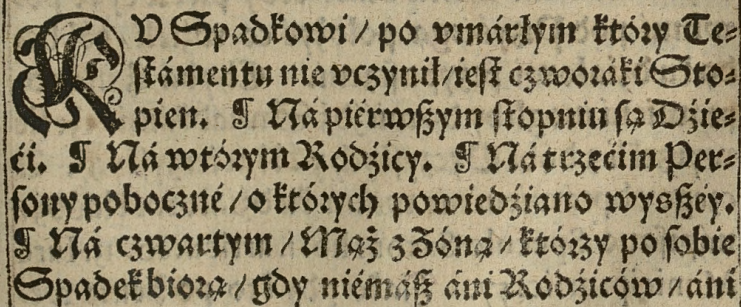 KV Spadkowi / po vmárłym który Te-
stámentu nie vczynił / iest czworáki Sto-
pien. ¶ Ná piérwßym stopniu są Dźie-
ći. ¶ Ná wtórym Rodźicy. ¶ Ná trzećim Per-
sony poboczné / o których powiedźiano wysßéy.
¶ Ná czwartym / Mąż z Żoną / którzy po sobie
Spadek biorą / gdy niémáß áni Rodźiców / áni